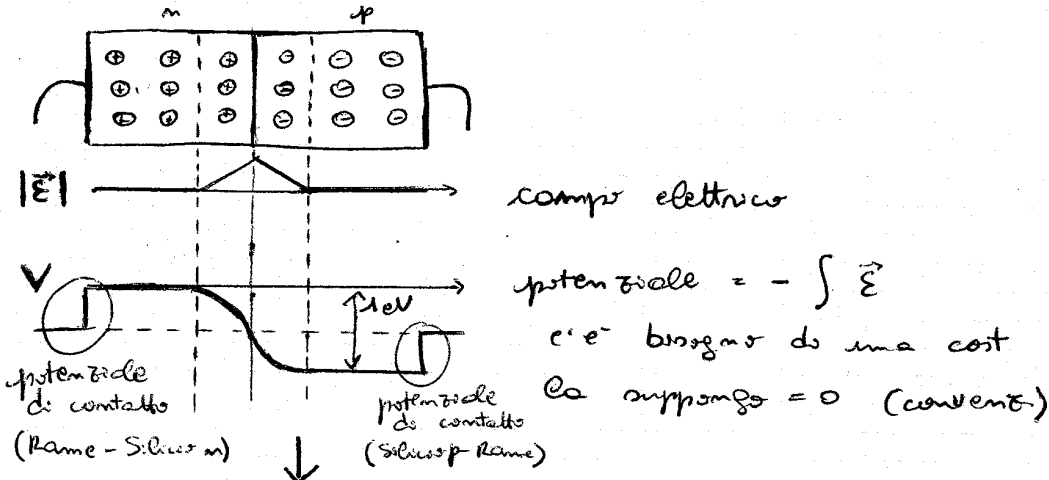 n p
|ε⃗|
campo elettrico
V
1eV
potenziale = - ∫ ε⃗
c'e' bisogno di una cost
la suppongo = 0 (convenz.)
potenziale
di contatto
(Rame - Silicio n)
potenziale
di contatto
(Silicio p Rame)